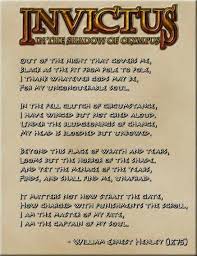 INVICTUS
IN THE SHADOW OF OLYMPUS
OUT OF THE NIGHT THAT COVERS ME,
BLACK AS THE PIT FROM POLE TO POLE,
I THANK WHATEVER GODS MAY BE,
FOR MY UNCONQUERABLE SOUL.
IN THE FELL CLUTCH OF CIRCUMSTANCE,
I HAVE WINCED BUT NOT CRIED ALOUD,
UNDER THE BLUDGEONINGS OF CHANCE,
MY HEAD IS BLOODED BUT UNBOWED.
BEYOND THIS PLACE OF WRATH AND TEARS,
LOOMS BUT THE HORROR OF THE SHADE,
AND YET THE MENACE OF THE YEARS,
FINDS, AND SHALL FIND ME, UNAFRAID.
IT MATTERS NOT HOW STRAIT THE GATE,
HOW CHARGED WITH PUNISHMENTS THE SCROLL,
I AM THE MASTER OF MY FATE,
I AM THE CAPTAIN OF MY SOUL.
- WILLIAM ERNEST HENLEY (1875)